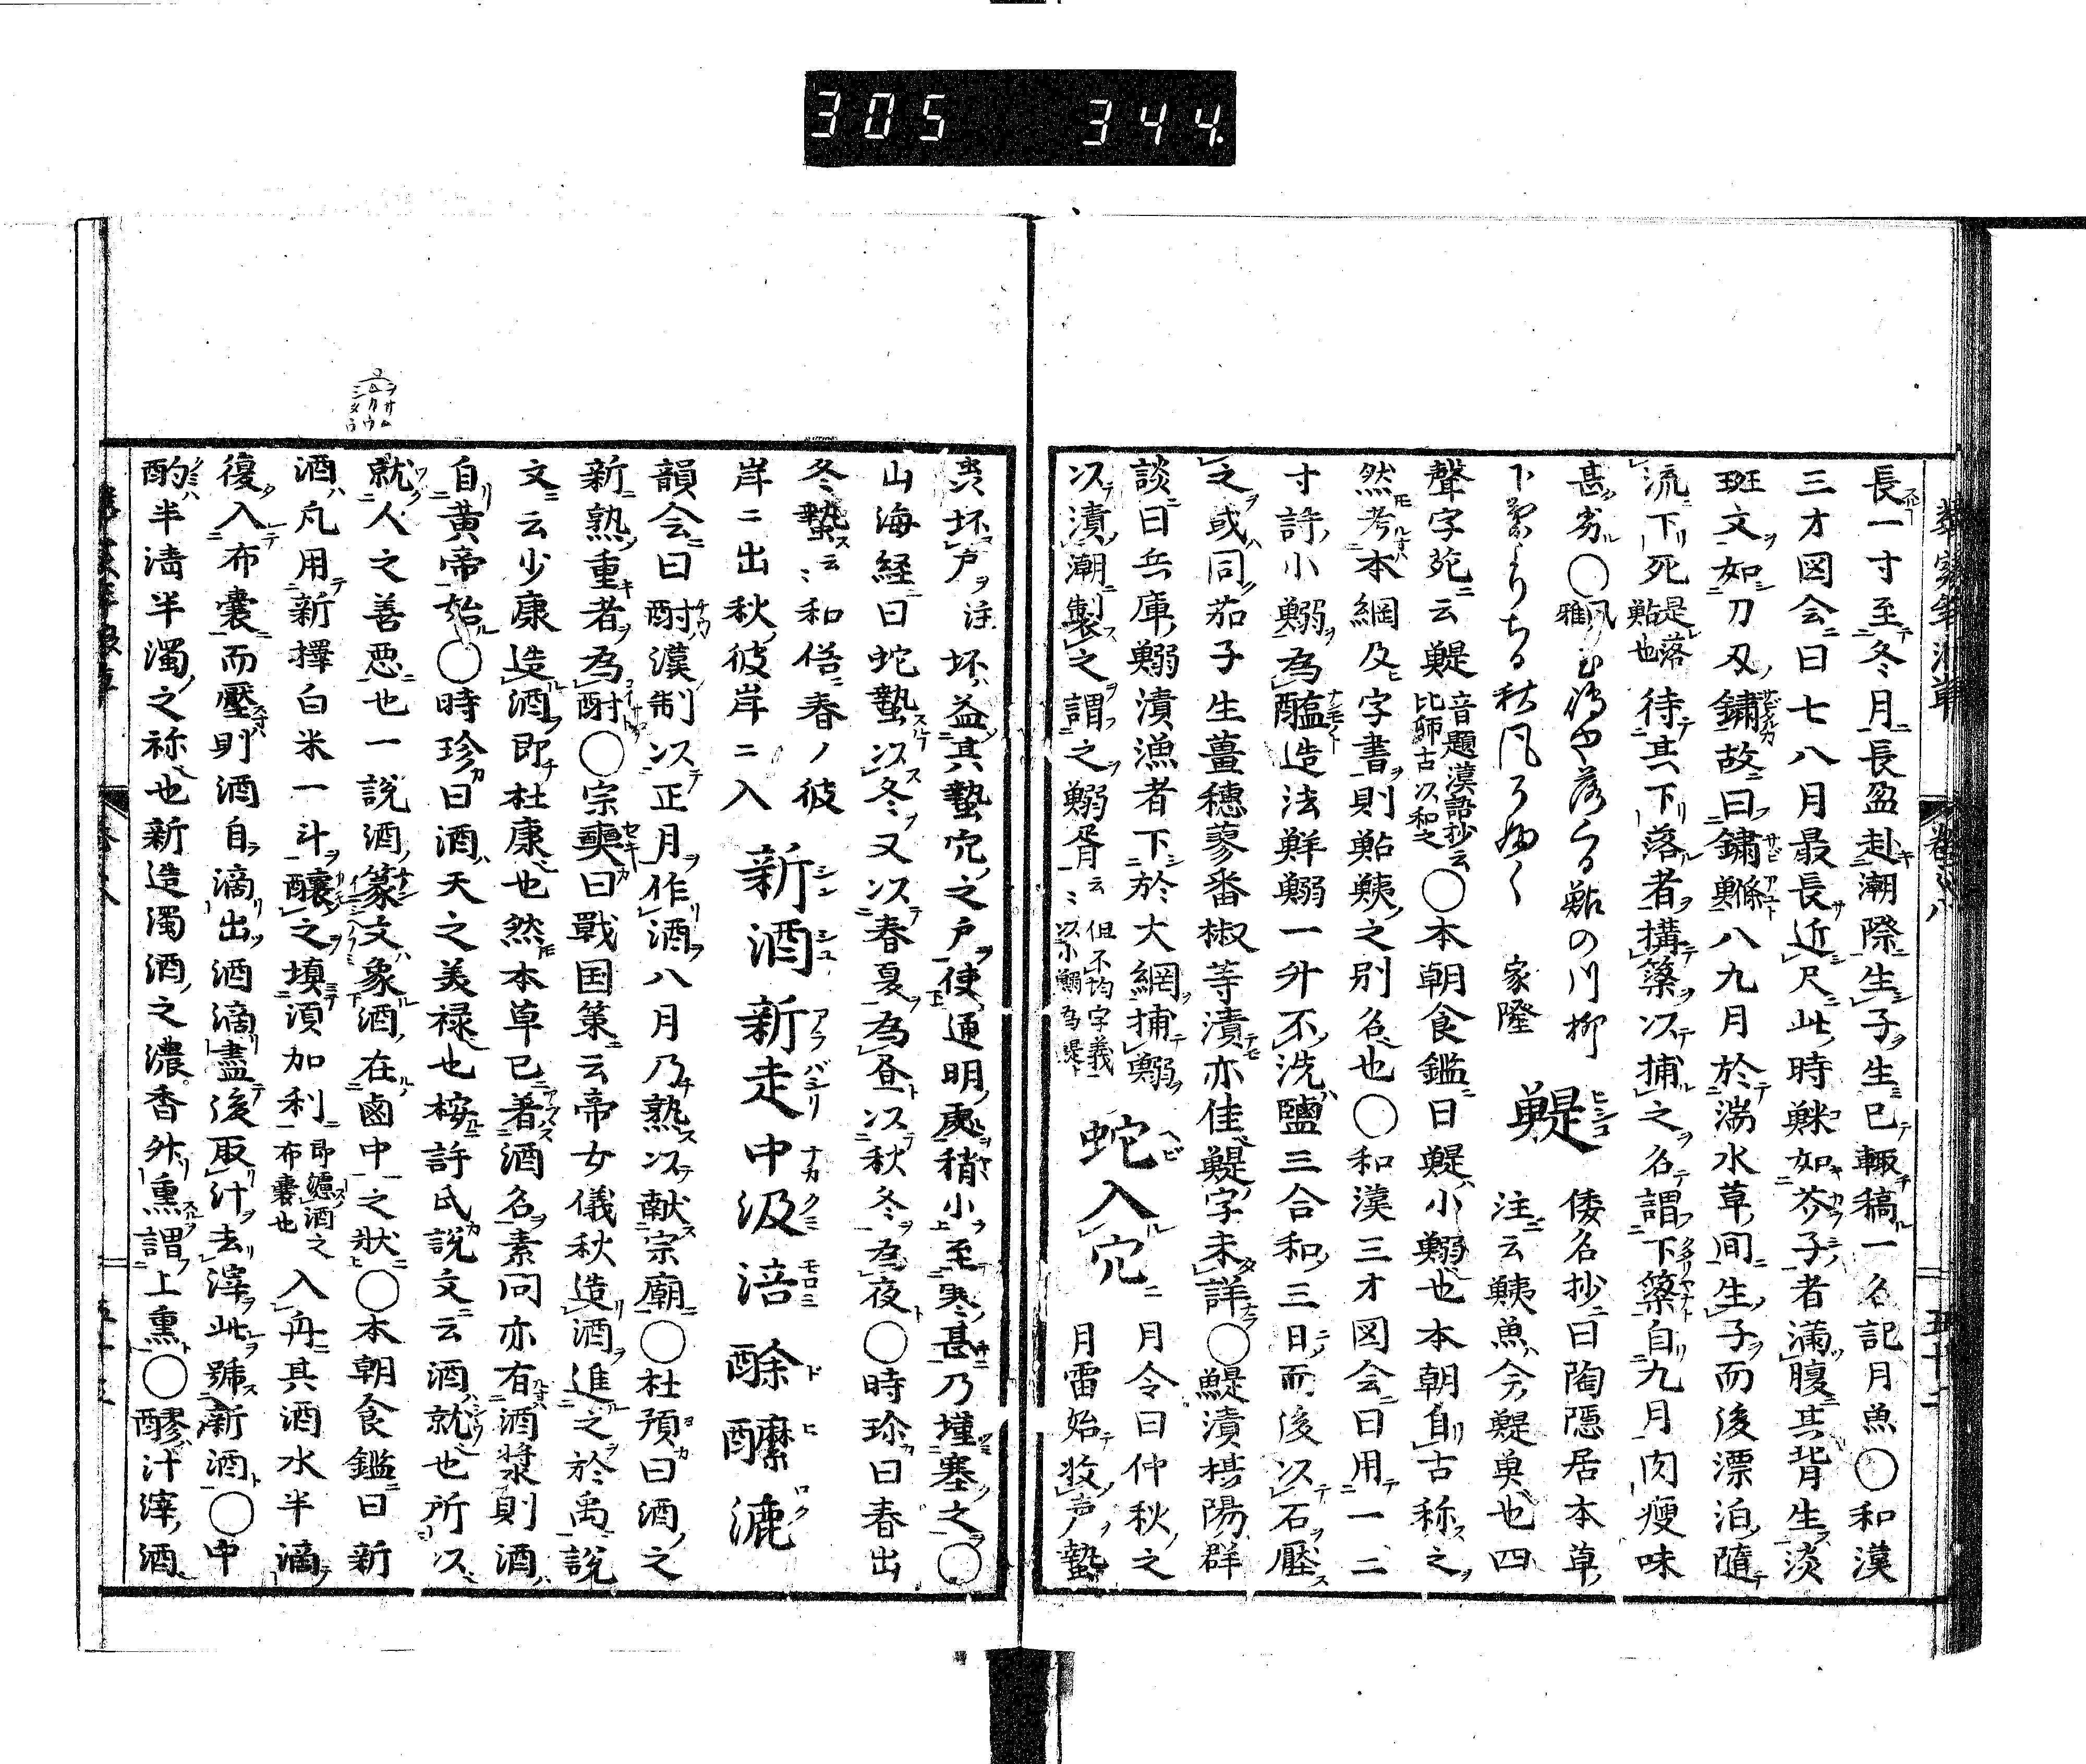 305 344
長一寸至冬月長盈赴潮際生子生已輙稿一名記月魚〇和漢
三才図会曰七八月最長近尺此時鰍如芥子者満腹其背生淡
斑文如刀刄鏽故曰鏽鰷八九月於湍水草間生子而後漂泊隨
流下死是落鮎也待其下落者構簗以捕之名謂下簗自九月肉痩味
甚劣〇風雅
下簗よりちる秋風ろ 家隆 鯷 注云鮧魚今鯷魚也四
倭名抄曰陶隠居本草
聲字苑云鯷音題漢語抄云比師古以和之〇本朝食鑑曰鯷小鰯也本朝自古称之
然考本綱及字書則鮎鮧之別名也〇和漢三才図会曰用一二
寸許小鰯為醢造法鮮鰯一升不洗鹽三合和三日而後以石壓
之或同茄子生薑穂蓼番椒等漬亦佳鯷字未詳〇鯷漬摂陽群
談曰兵庫鰯漬漁者下於大網捕鰯 蛇入穴 月令曰仲秋之
以漬潮製之謂之鰯胥云〻但不均字義以小鰯為鯷 月雷始收声蟄
虫坏戸注坏益其蟄穴之戸使通明處稍小至寒甚乃墐塞之〇
山海経曰蛇蟄以冬又以春夏為昼以秋冬為夜〇時珍曰春出
冬蟄云〻和俗春ノ彼
岸ニ出秋彼岸ニ入 新酒新走中汲涪酴醾漉
韻会曰酎漢制以正月作酒八月乃熟以献宗廟〇杜預曰酒之
新熟重者為酎〇宗奭曰戦国策云帝女儀秋造酒進之於禹説
文云少康造酒即杜康也然本草已著酒名素問亦有酒漿則酒
自黄帝始〇時珍曰酒天之美禄也桉許氏説文云酒就也所以
就人之善悪也一説酒篆文象酒在卣中之状〇本朝食鑑曰新
酒凡用新擇白米一斗醸之填湏加利即漉酒之布嚢也入冉其酒水半滴
復入布嚢而壓則酒自滴出酒滴盡後取汁去滓此號新酒〇中
酌半清半濁之祢也新造濁酒之濃香外熏謂上熏〇醪汁滓酒